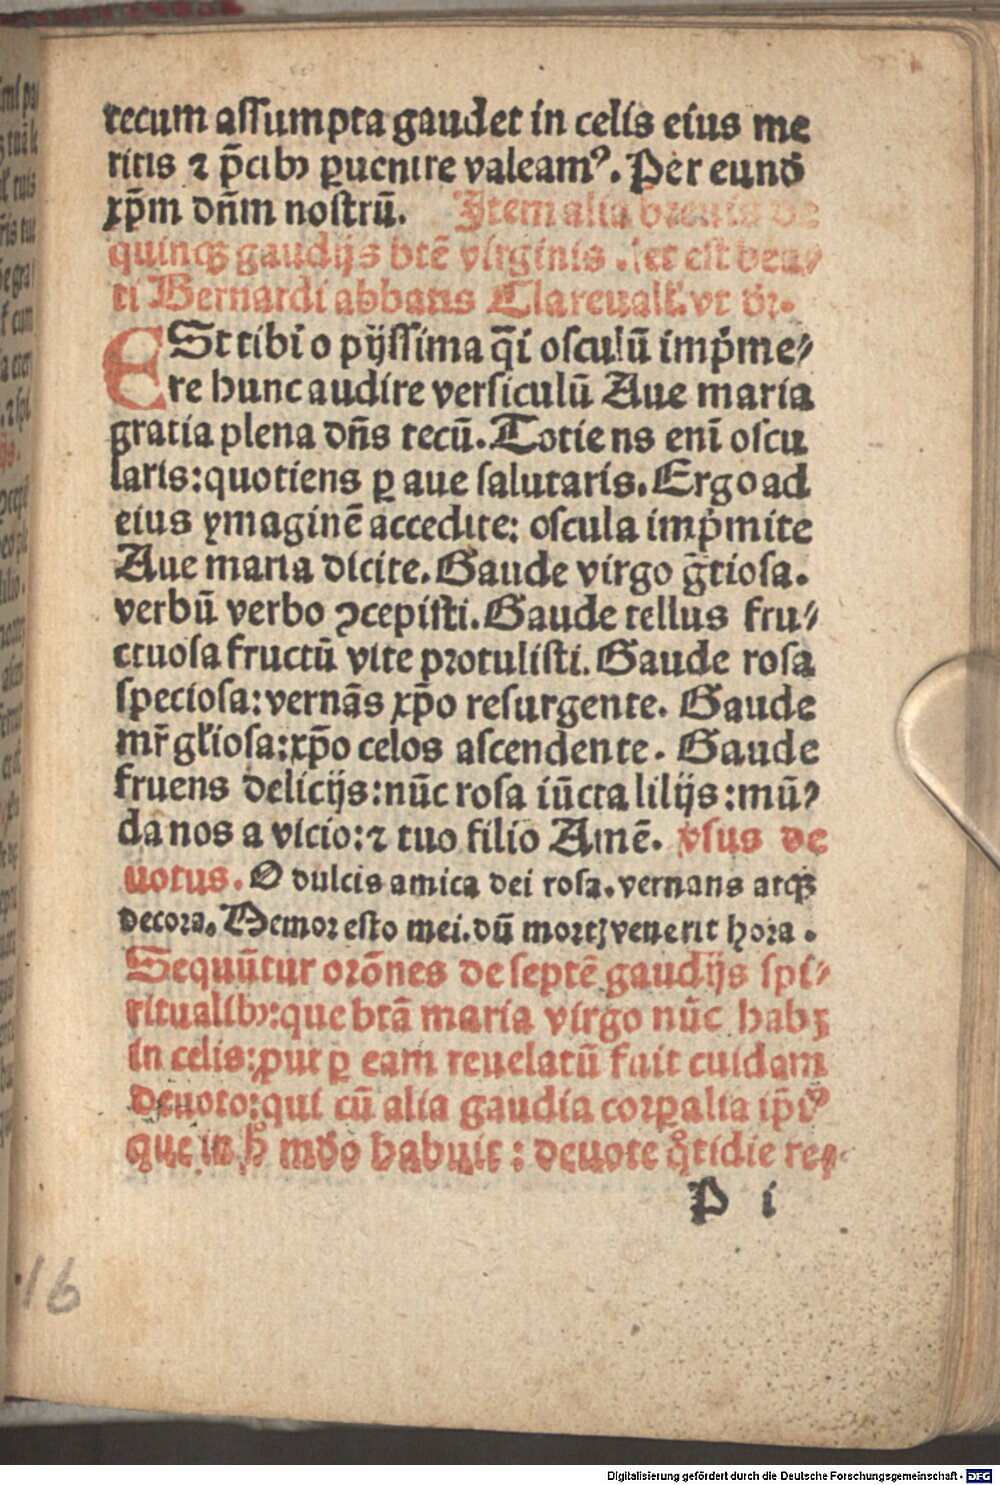 tecum assumpta gaudet in celis eius me
ritis ⁊ p̃cibꝰ ꝑuenire valeamꝰ. Per eund̃
xp̃m dñm nostrũ. Item alia breuis de
quinqꝫ gaudijs btẽ virginis . et est bea⸗
ti Bernardi abbatis Clareuall̃. vt dr̃.
ESt tibi o pijssima q̃i osculũ imp̃me⸗
re hunc audire versiculũ Aue maria
gratia plena dñs tecũ. Totiens enĩ oscu
laris: quotiens ꝑ aue salutaris. Ergo ad
eius ymaginẽ accedite: oscula imp̃mite
Aue maria dicite. Gaude virgo g̃tiosa.
verbũ verbo ꝯcepisti. Gaude tellus fru⸗
ctuosa fructũ vite protulisti. Gaude rosa
speciosa: vernãs xp̃o resurgente. Gaude
mr̃ gl̃iosa: xp̃o celos ascendente. Gaude
fruens delicijs: nũc rosa iũcta lilijs: mũ⸗
da nos a vicio: ⁊ tuo filio Amẽ. vsus de
uotus. O dulcis amica dei rosa. vernans atqꝫ
decora. Memor esto mei. dũ mortꝭ venerit hora.
Sequũtur orõnes de septẽ gaudijs spi⸗
ritualibꝰ: que btã maria virgo nũc habꝫ
in celis: ꝓut ꝑ eam reuelatũ fuit cuidam
deuoto: qui cũ alia gaudia corꝑalia ip̃iꝰ
que in h̃ mũdo habuit: deuote q̃tidie re⸗
P i
16
Digitalisierung gefördert durch die Deutsche Forschungsgemeinschaft - DFG